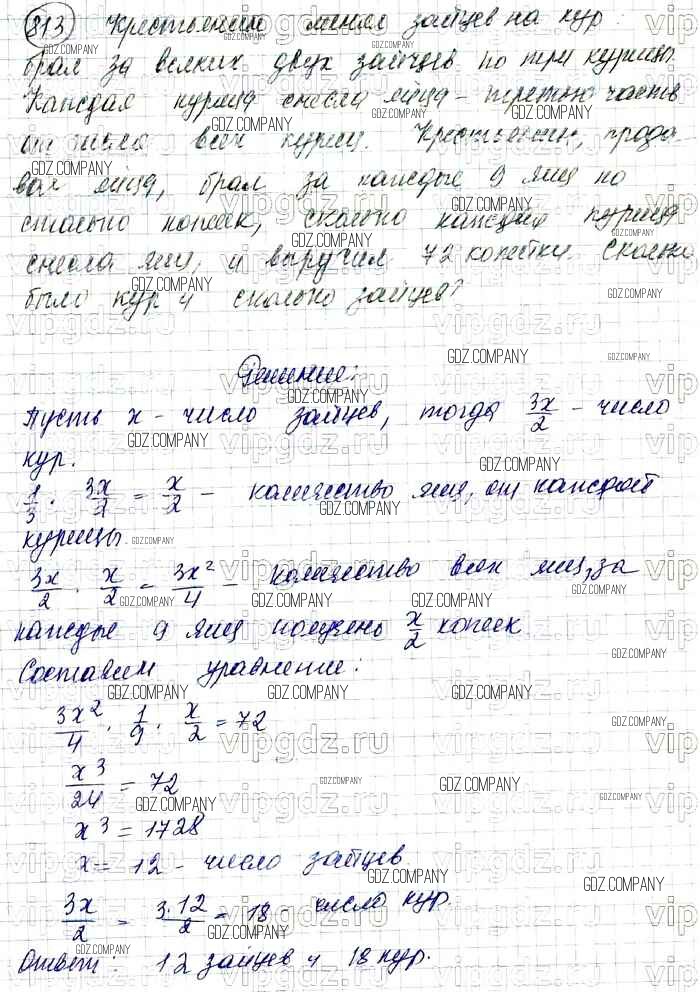 813 Крестьянин менял зайцев на кур:
брал за всяких двух зайцев по три курицы.
Каждая курица снесла яйца - третью часть
от числа всех куриц. Крестьянин, прода-
вая яйца, брал за каждые 9 яиц по
столько копеек, сколько каждая курица
снесла яиц, и выручил 72 копейки. Сколько
было кур и сколько зайцев?
Решение:
Пусть x - число зайцев, тогда 3x/2 - число
кур.
1/3 · 3x/2 = x/2 - количество яиц, от каждой
курицы.
3x/2 · x/2 = 3x²/4 - количество всех яиц, за
каждые 9 яиц получено x/2 копеек
Составим уравнение:
3x²/4 · 1/9 · x/2 = 72
x³/24 = 72
x³ = 1728
x = 12 - число зайцев.
3x/2 = 3·12/2 = 18 число кур.
Ответ: 12 зайцев и 18 кур.
GDZ.COMPANY
vipgdz.ru